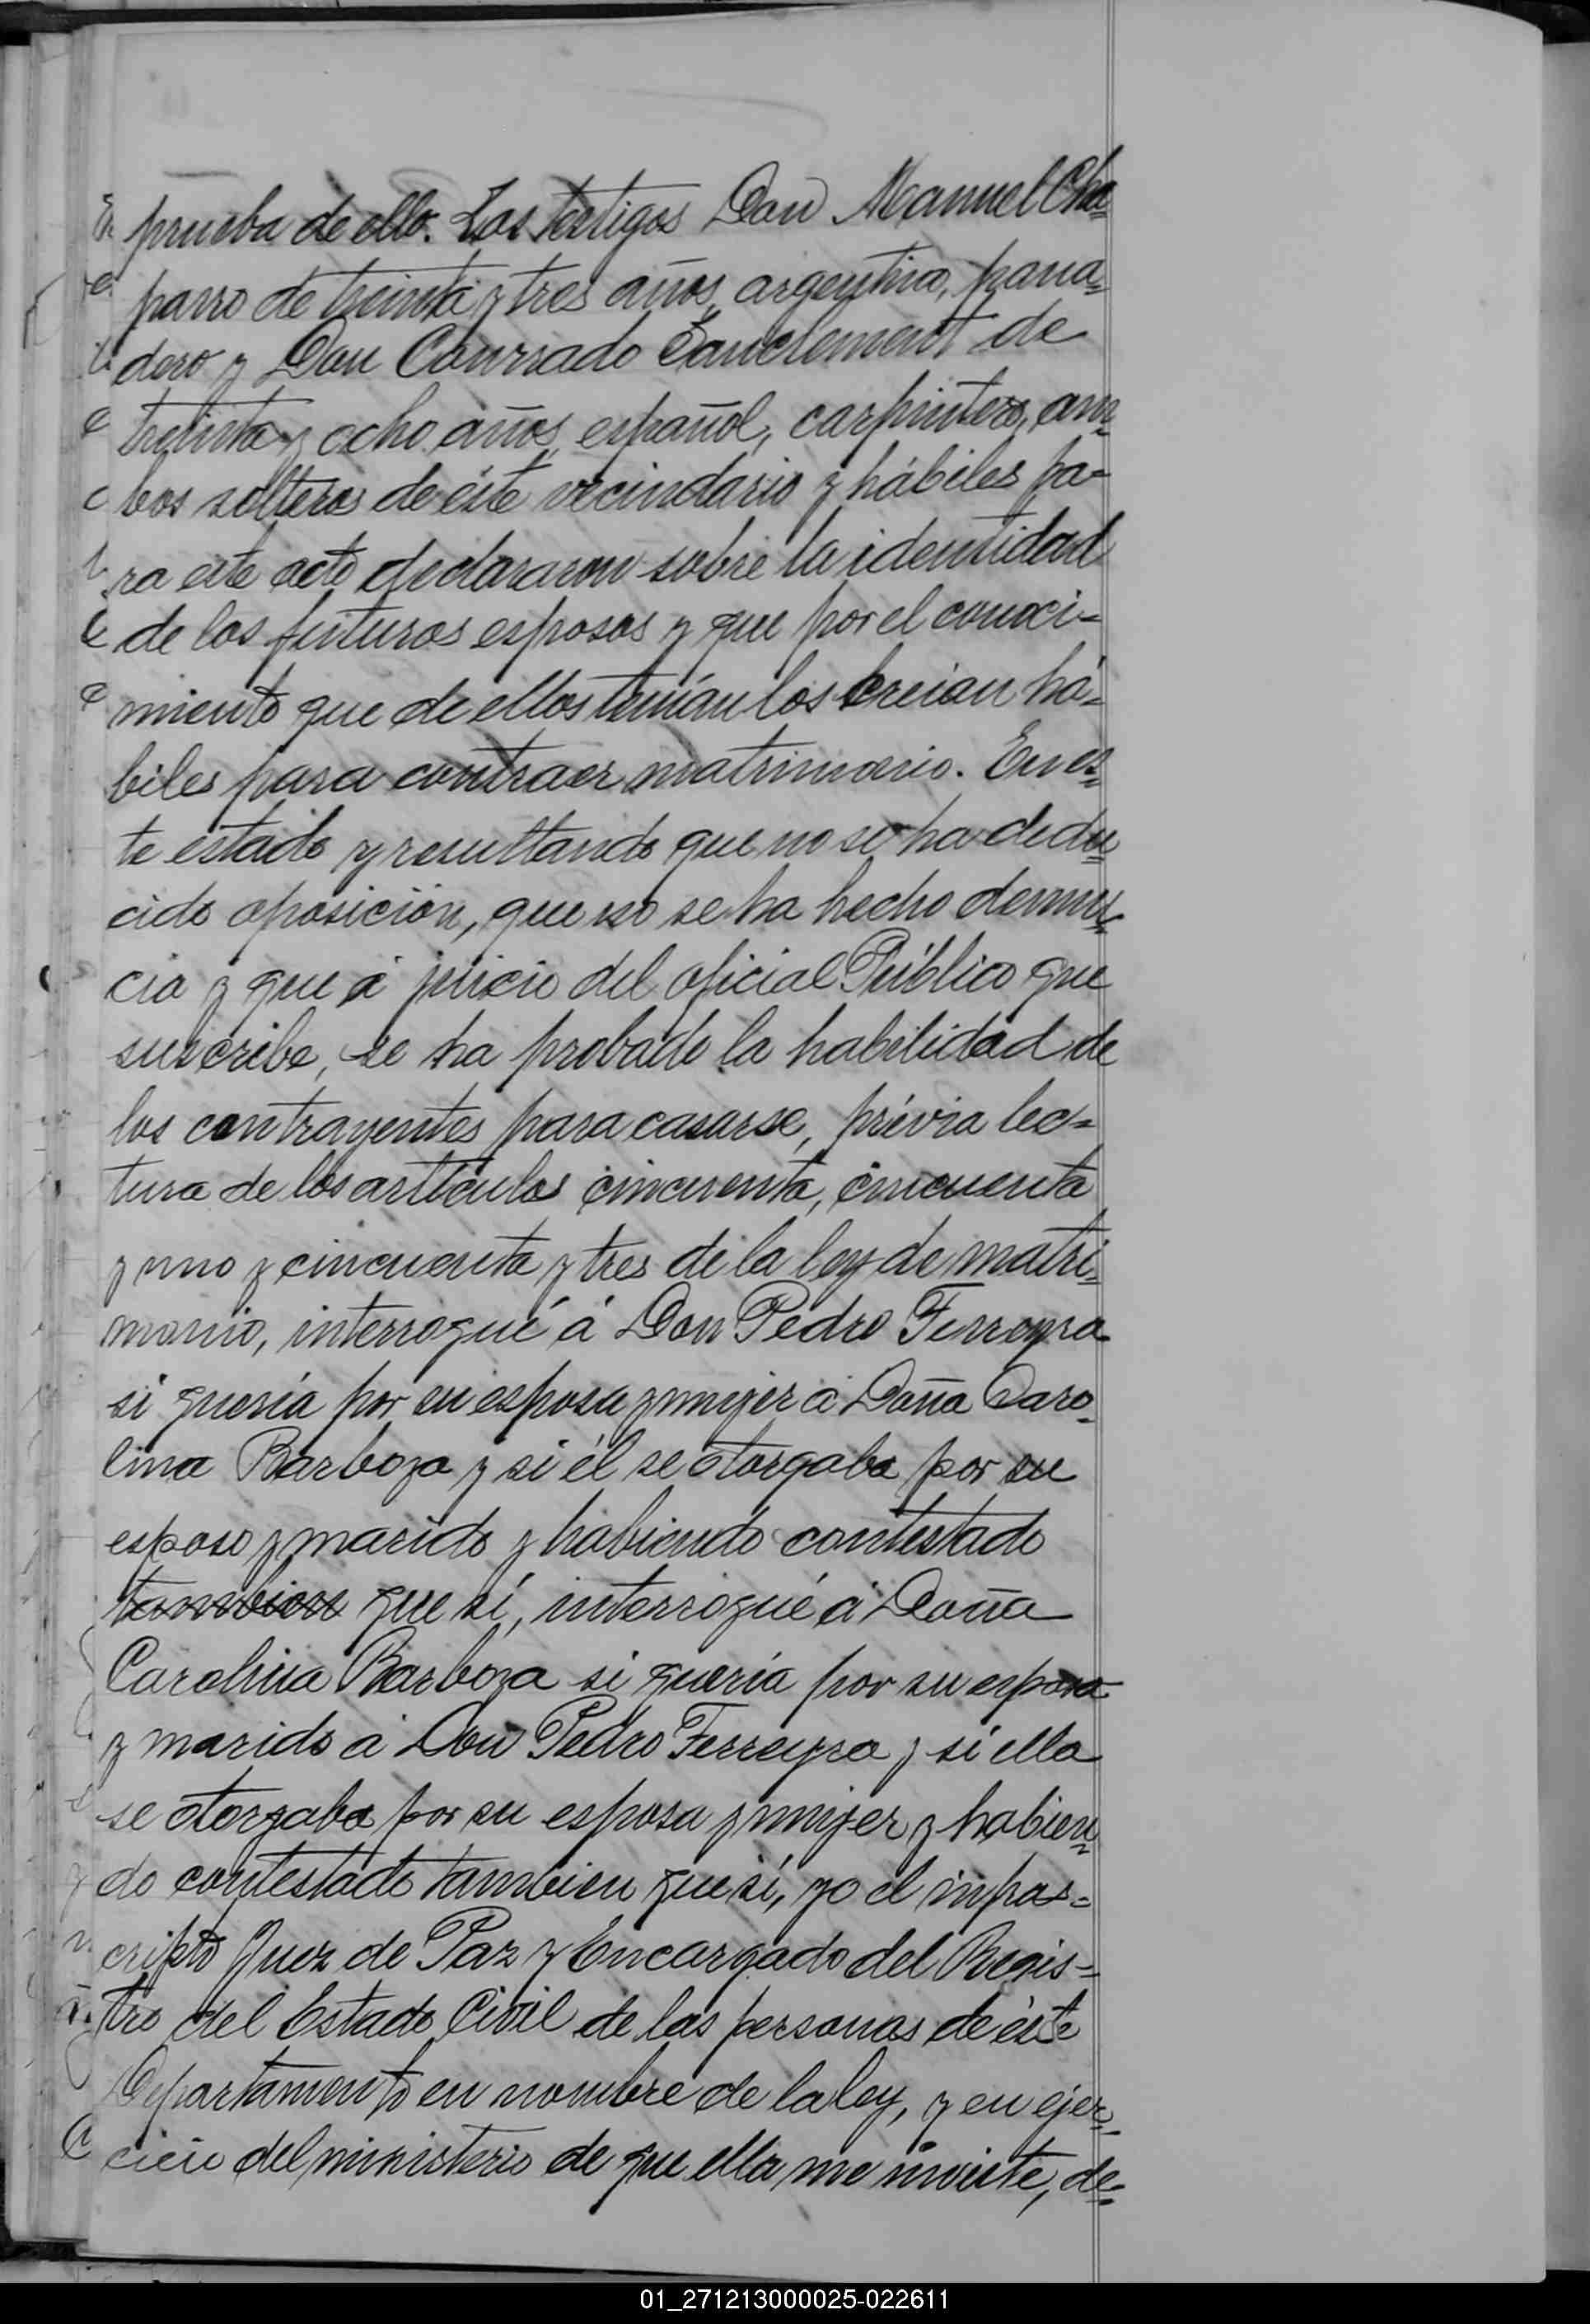 prueba de ello. Los testigos Don Manuel Cha=
parro de treinta y tres años, argentino, pana=
dero y Don Conrrado Sanclement de
treinta y ocho años, español, carpintero, am=
bos solteros de éste vecindario y hábiles pa=
ra este acto declararon sobre la identidad
de los futuros esposos y que por el conoci=
miento que de ellos tenían los creian há=
biles para contraer matrimonio. En es=
te estado y resultando que no se ha dedu=
cido oposición, que no se ha hecho denun=
cia y que á juicio del oficial Público que
suscribe, se ha probado la habilidad de
los contrayentes para casarse, prévia lec=
tura de los artículos cincuenta, cincuenta
y uno y cincuenta y tres de la ley de matri=
monio, interrogué á Don Pedro Ferreyra
si quería por su esposa y mujer á Doña Caro=
lina Barboza y si él se otorgaba por su
esposo y marido y habiendo contestado
tambien que sí, interrogué á Doña
Carolina Barboza si quería por su esposo
y marido á Don Pedro Ferreyra y si ella
se otorgaba por su esposa y mujer y habien=
do contestado tambien que sí, yo el infras=
cripto Juez de Paz y Encargado del Regis=
tro del Estado Civil de las personas de éste
Departamento en nombre de la ley, y en ejer=
cicio del ministerio de que ella me inviste, de=
01_271213000025-022611